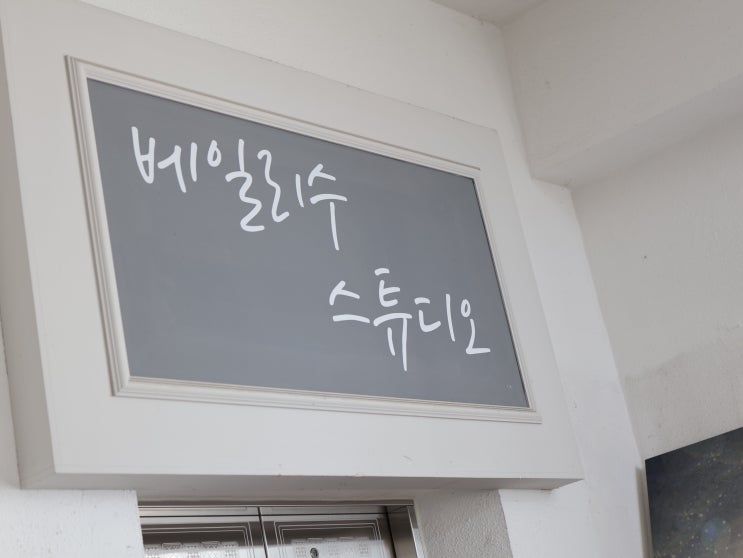 베일리수
스튜디오